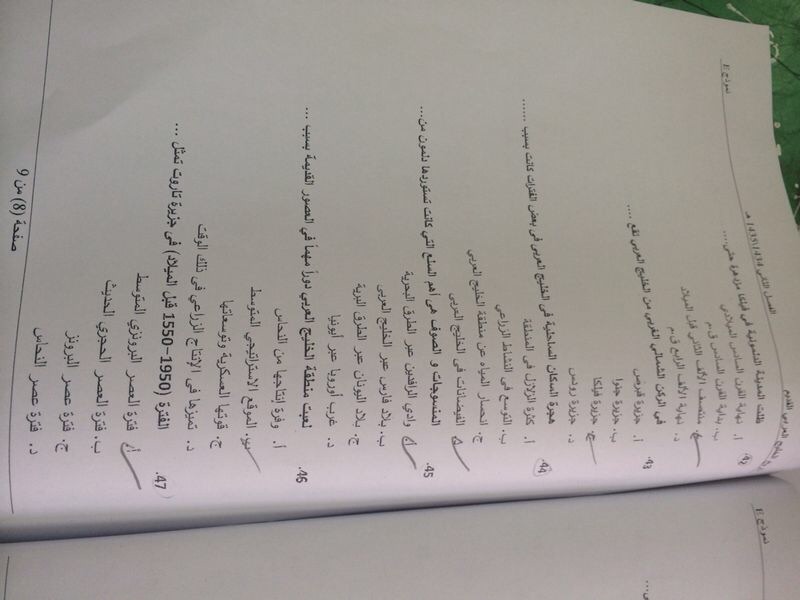 الخليج العربي القديم
الفصل الثاني 1435/1434 هـ
نموذج E
42. ظلت المدينة الدلمونية في فيلكا مزدهرة حتى....
أ. نهاية القرن السادس الميلادي
ب. بداية القرن السادس ق.م
ج. منتصف الألف الثاني قبل الميلاد
د. نهاية الألف الرابع ق.م
43. في الركن الشمالي الغربي من الخليج العربي تقع ....
أ. جزيرة قبرص
ب. جزيرة جنوا
ج. جزيرة فيلكا
د. جزيرة رودس
44. هجرة السكان الساحلية في الخليج العربي في بعض الفترات كانت بسبب ......
أ. كثرة الزلازل في المنطقة
ب. التوسع في النشاط الزراعي
ج. انحسار المياه عن منطقة الخليج العربي
د. الفيضانات في الخليج العربي
45. المنسوجات و الصوف هي أهم السلع التي كانت تستوردها دلمون من...
أ. وادي الرافدين عبر الطرق البحرية
ب. بلاد فارس عبر الخليج العربي
ج. بلاد اليونان عبر الطرق البرية
د. غرب أوروبا عبر أيونيا
46. لعبت منطقة الخليج العربي دوراً مهماً في العصور القديمة بسبب ...
أ. وفرة إنتاجها من النحاس
ب. الموقع الاستراتيجي المتوسط
ج. قوتها العسكرية وتوسعاتها
د. تميزها في الإنتاج الزراعي في ذلك الوقت
47. الفترة (1950-1550 قبل الميلاد) في جزيرة تاروت تمثل ...
أ. فترة العصر البرونزي المتوسط
ب. فترة العصر الحجري الحديث
ج. فترة عصر البرونز
د. فترة عصر النحاس
صفحة (8) من 9
نموذج E